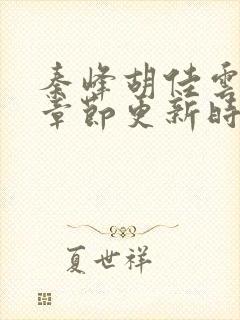 秦峰胡佳雲
章節更新時
夏世祥